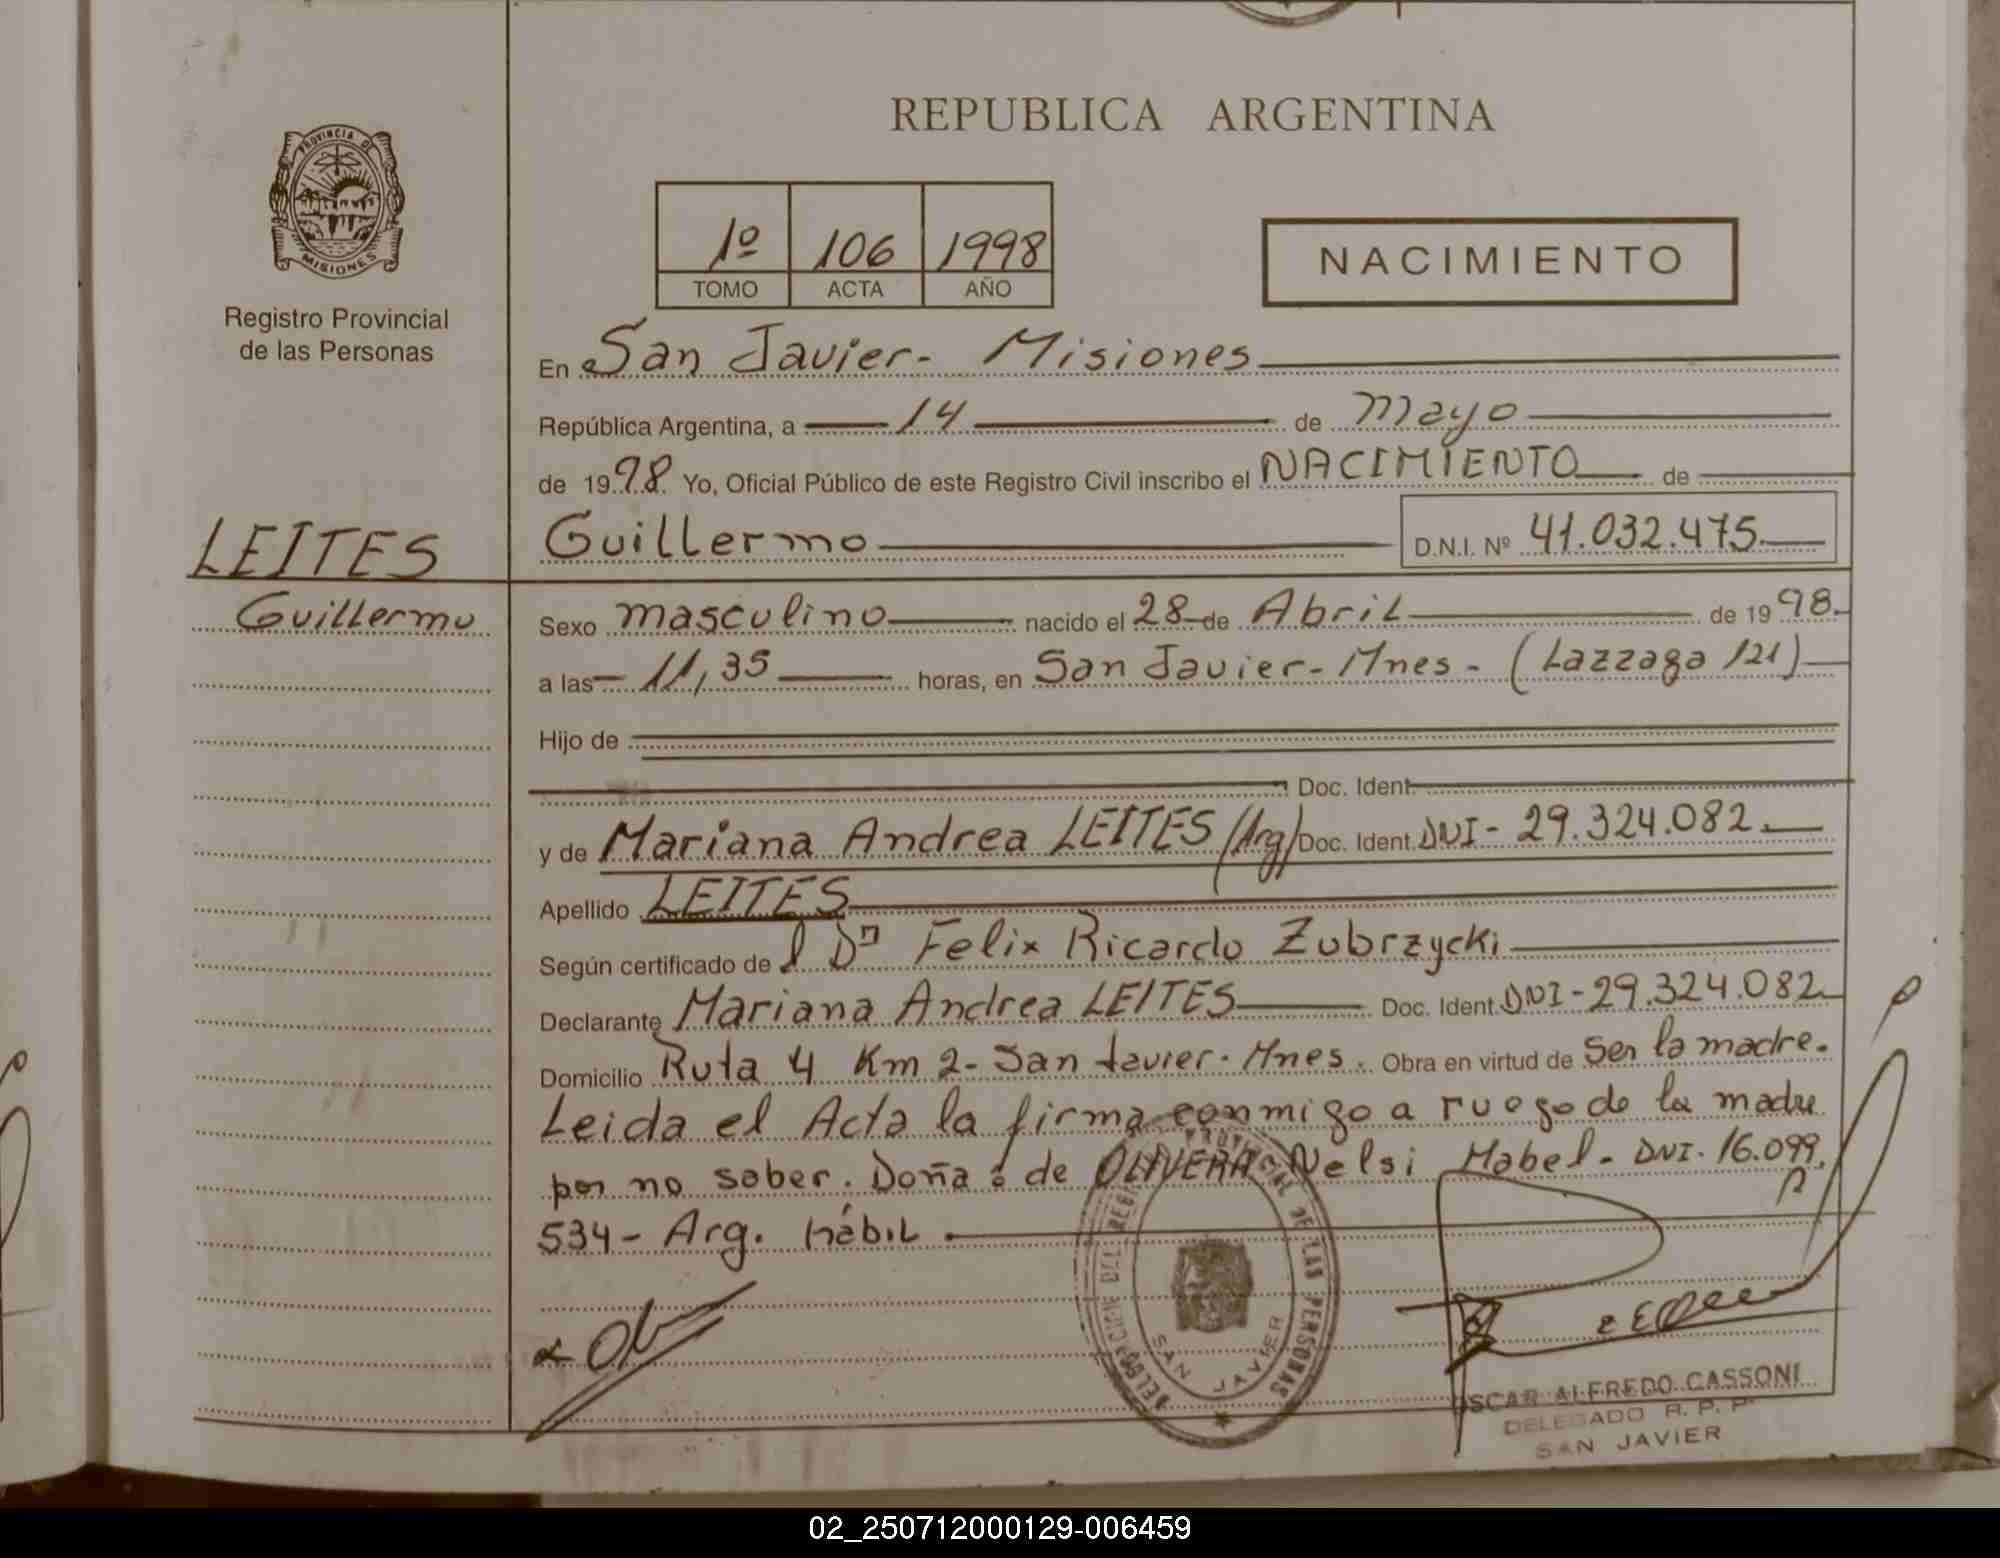 REPUBLICA ARGENTINA
PROVINCIA DE MISIONES
Registro Provincial
de las Personas
1º 106 1998
TOMO ACTA AÑO
NACIMIENTO
En San Javier - Misiones
República Argentina, a 14 de Mayo
de 1998. Yo, Oficial Público de este Registro Civil inscribo el NACIMIENTO de
LEITES
Guillermo
Guillermo D.N.I. Nº 41.032.475.
Sexo masculino nacido el 28 de Abril de 1998.
a las 11,35 horas, en San Javier - Mnes - (Lazzaga 121)
Hijo de
Doc. Ident.
y de Mariana Andrea LEITES (Arg) Doc. Ident. DNI - 29.324.082.
Apellido LEITES
Según certificado del Dr Felix Ricardo Zubrzycki
Declarante Mariana Andrea LEITES Doc. Ident. DNI - 29.324.082.
Domicilio Ruta 4 Km 2 - San Javier - Mnes. Obra en virtud de Ser la madre.
Leida el Acta la firma conmigo a ruego de la madre
por no saber. Doña de OLIVERA Nelsi Mabel - DNI. 16.099.
534 - Arg. hábil
PROVINCIAL DE LAS PERSONAS
SAN JAVIER
OSCAR ALFREDO CASSONI
DELEGADO R. P. P.
SAN JAVIER
02_250712000129-006459